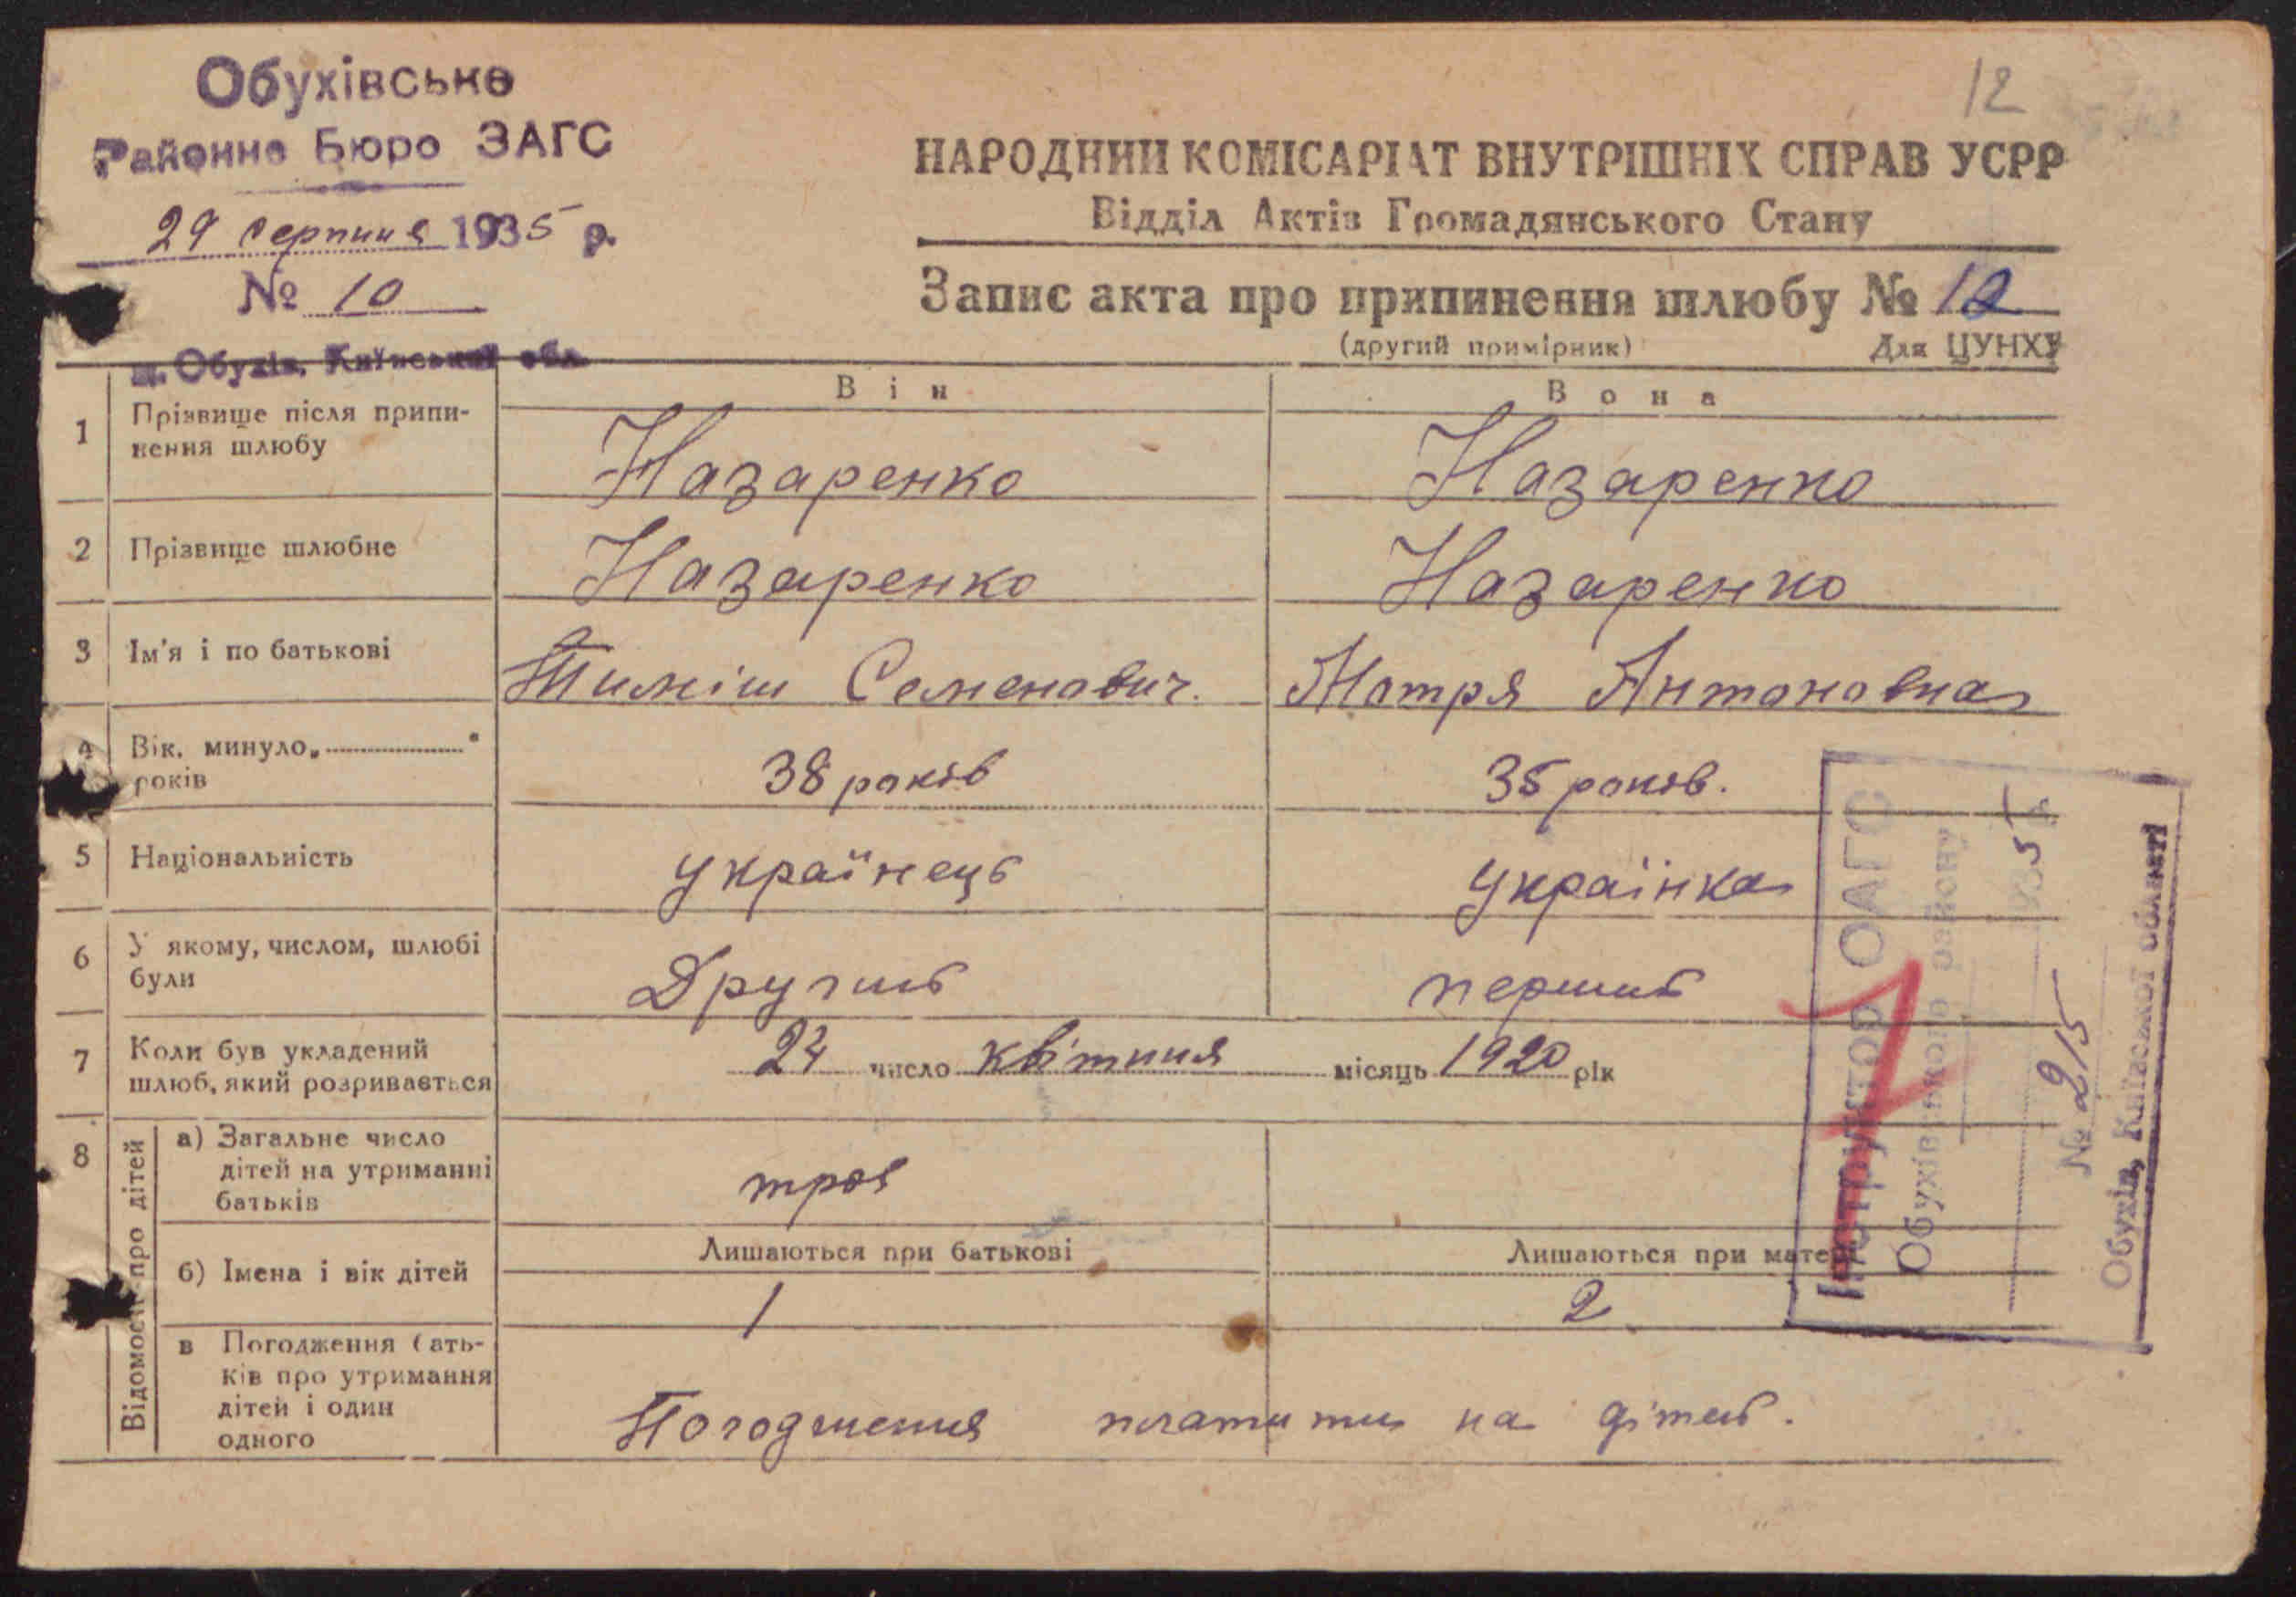 12
Обухівське
Районне Бюро ЗАГС
29 серпня 1935 р.
№ 10
м. Обухів, Київської обл.
НАРОДНИЙ КОМІСАРІАТ ВНУТРІШНІХ СПРАВ УСРР
Відділ Актів Громадянського Стану
Запис акта про припинення шлюбу № 12
(другий примірник) Для ЦУНХУ
Він Вона
1 Прізвище після припинення шлюбу Назаренко Назаренко
2 Прізвище шлюбне Назаренко Назаренко
3 Ім'я і по батькові Тиміш Семенович. Мотря Антоновна
4 Вік. минуло „ " років 38 років 35 років.
5 Національність українець українка
6 У якому, числом, шлюбі були Другий перший
7 Коли був укладений шлюб, який розривається 24 число квітния місяць 1920 рік
8 Відомості про дітей
а) Загальне число дітей на утриманні батьків троє
б) Імена і вік дітей Лишаються при батькові Лишаються при матері
1 2
в Погодження батьків про утримання дітей і один одного Погодження платити на дітей.
Інструктор ОАГС
Обухівського району
1935 р.
№ 215
Обухів, Київської області